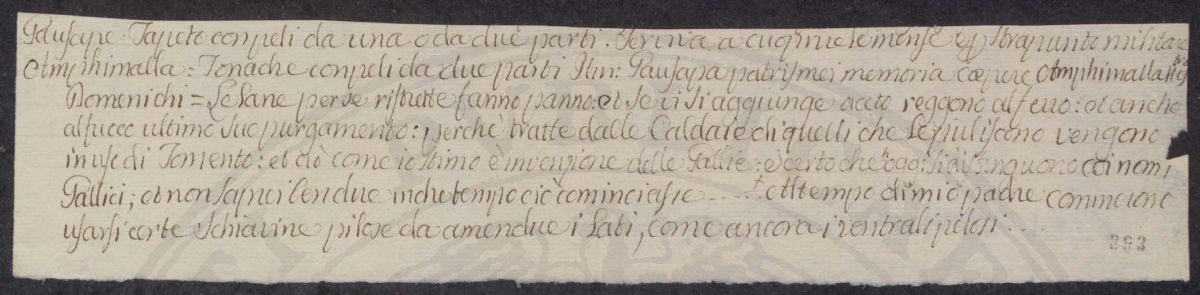 Gausape Tapeto con peli da una o da due parti. Serviva a cuoprire le mense et strapunto militare
Amphimalla: Tonache con peli da due parti Plin: Gausapa patris mei memoria cœpere Amphimalla
Domenichi = Le Lane per se ristrette fanno panno: et se vi si aggiunge aceto reggono al ferro: et anche
al fuoco ultimo suo purgamento: perche tratte dalle Caldaie di quelli che le puliscono vengono
in uso di Tomento: et ciò come io stimo è invenzione delle Gallie: è certo che oggi si distinguono coi nomi
Gallici; et non saprei ben due in che tempo ciò cominciasse .... Al tempo di mio padre cominciono
usarsi certe schiavine pilose da amendue i lati, come ancora i ventrali pelosi ...
393